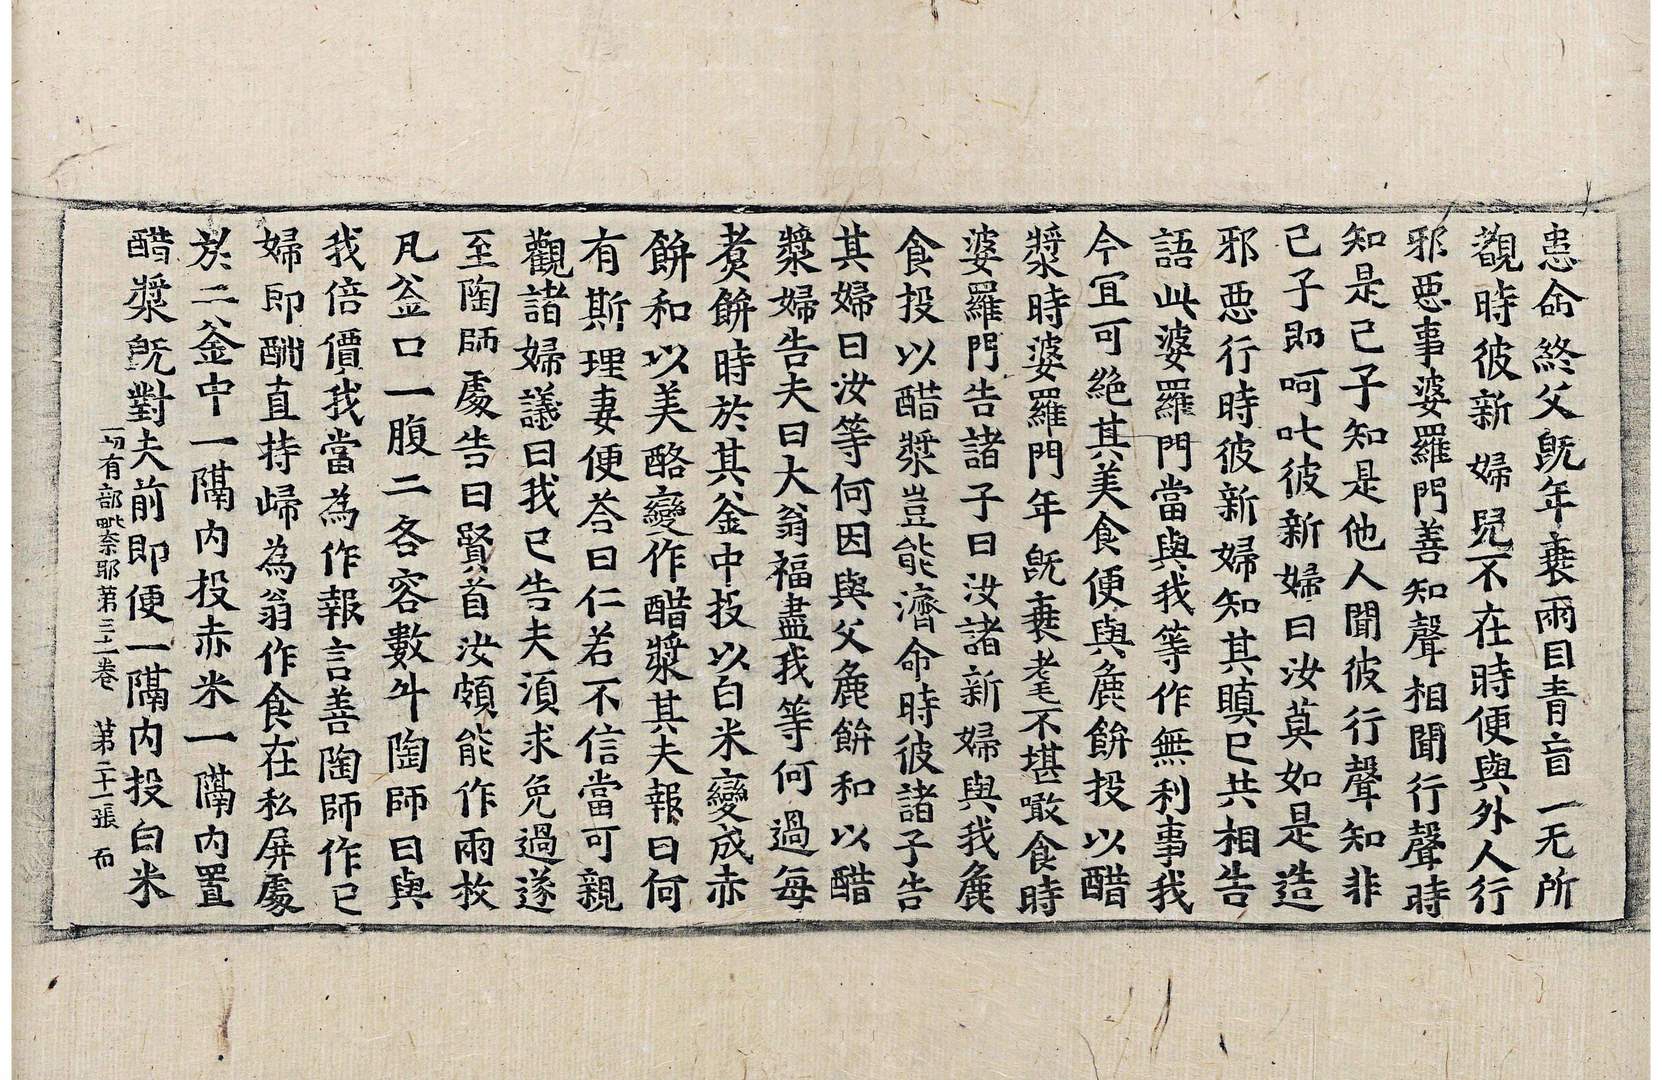 患命終父旣年衰兩目青盲一无所
覩時彼新婦兒不在時便與外人行
邪惡事婆羅門善知聲相聞行聲時
知是己子知是他人聞彼行聲知非
己子即呵叱彼新婦曰汝莫如是造
邪惡行時彼新婦知其瞋已共相告
語此婆羅門當與我等作無利事我
今冝可絶其美食便與麁餅投以醋
漿時婆羅門年旣衰老不堪噉食時
婆羅門告諸子曰汝諸新婦與我麁
食投以醋漿豈能濟命時彼諸子告
其婦曰汝等何因與父麁餅和以醋
漿婦告夫曰大翁福盡我等何過每
煑餅時於其釜中投以白米變成赤
餅和以美酪變作醋漿其夫報曰何
有斯理妻便荅曰仁若不信當可親
觀諸婦議曰我已告夫須求免過遂
至陶師處告曰賢首汝頗能作兩枚
凡釜口一腹二各容數斗陶師曰與
我倍價我當為作報言善陶師作已
婦即酬直持歸為翁作食在私屏處
於二釜中一隔內投赤米一隔內置
醋漿旣對夫前即便一隔內投白米
一切有部毗奈耶第三十二卷 第二十一張 而